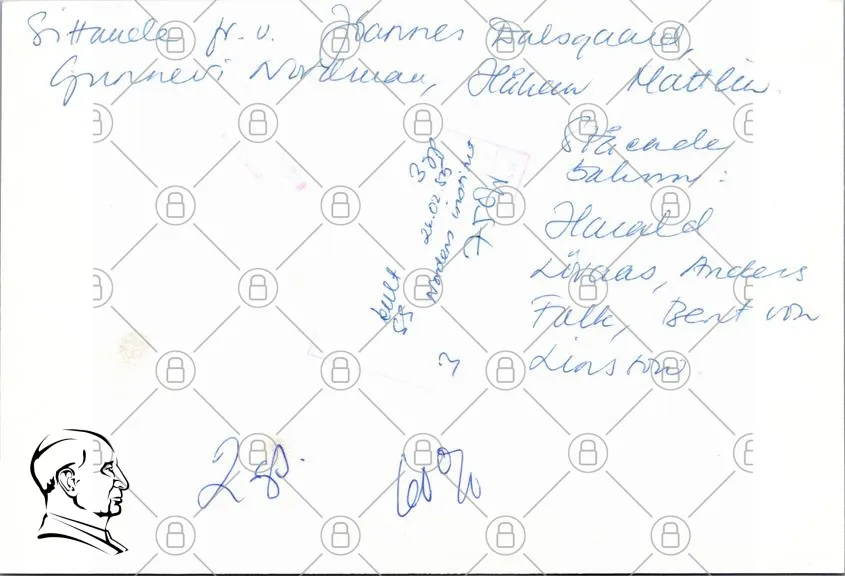 Sittande fr. v. Joannes Dalsgaard,
Gunnevi Nordman, Håkan Mattlin.
Stående
bakom:
Harald
Lövaas, Anders
Falk, Bent von
kult
55
3 sp
22.02 55
Nordens institut
2 sp.
60%